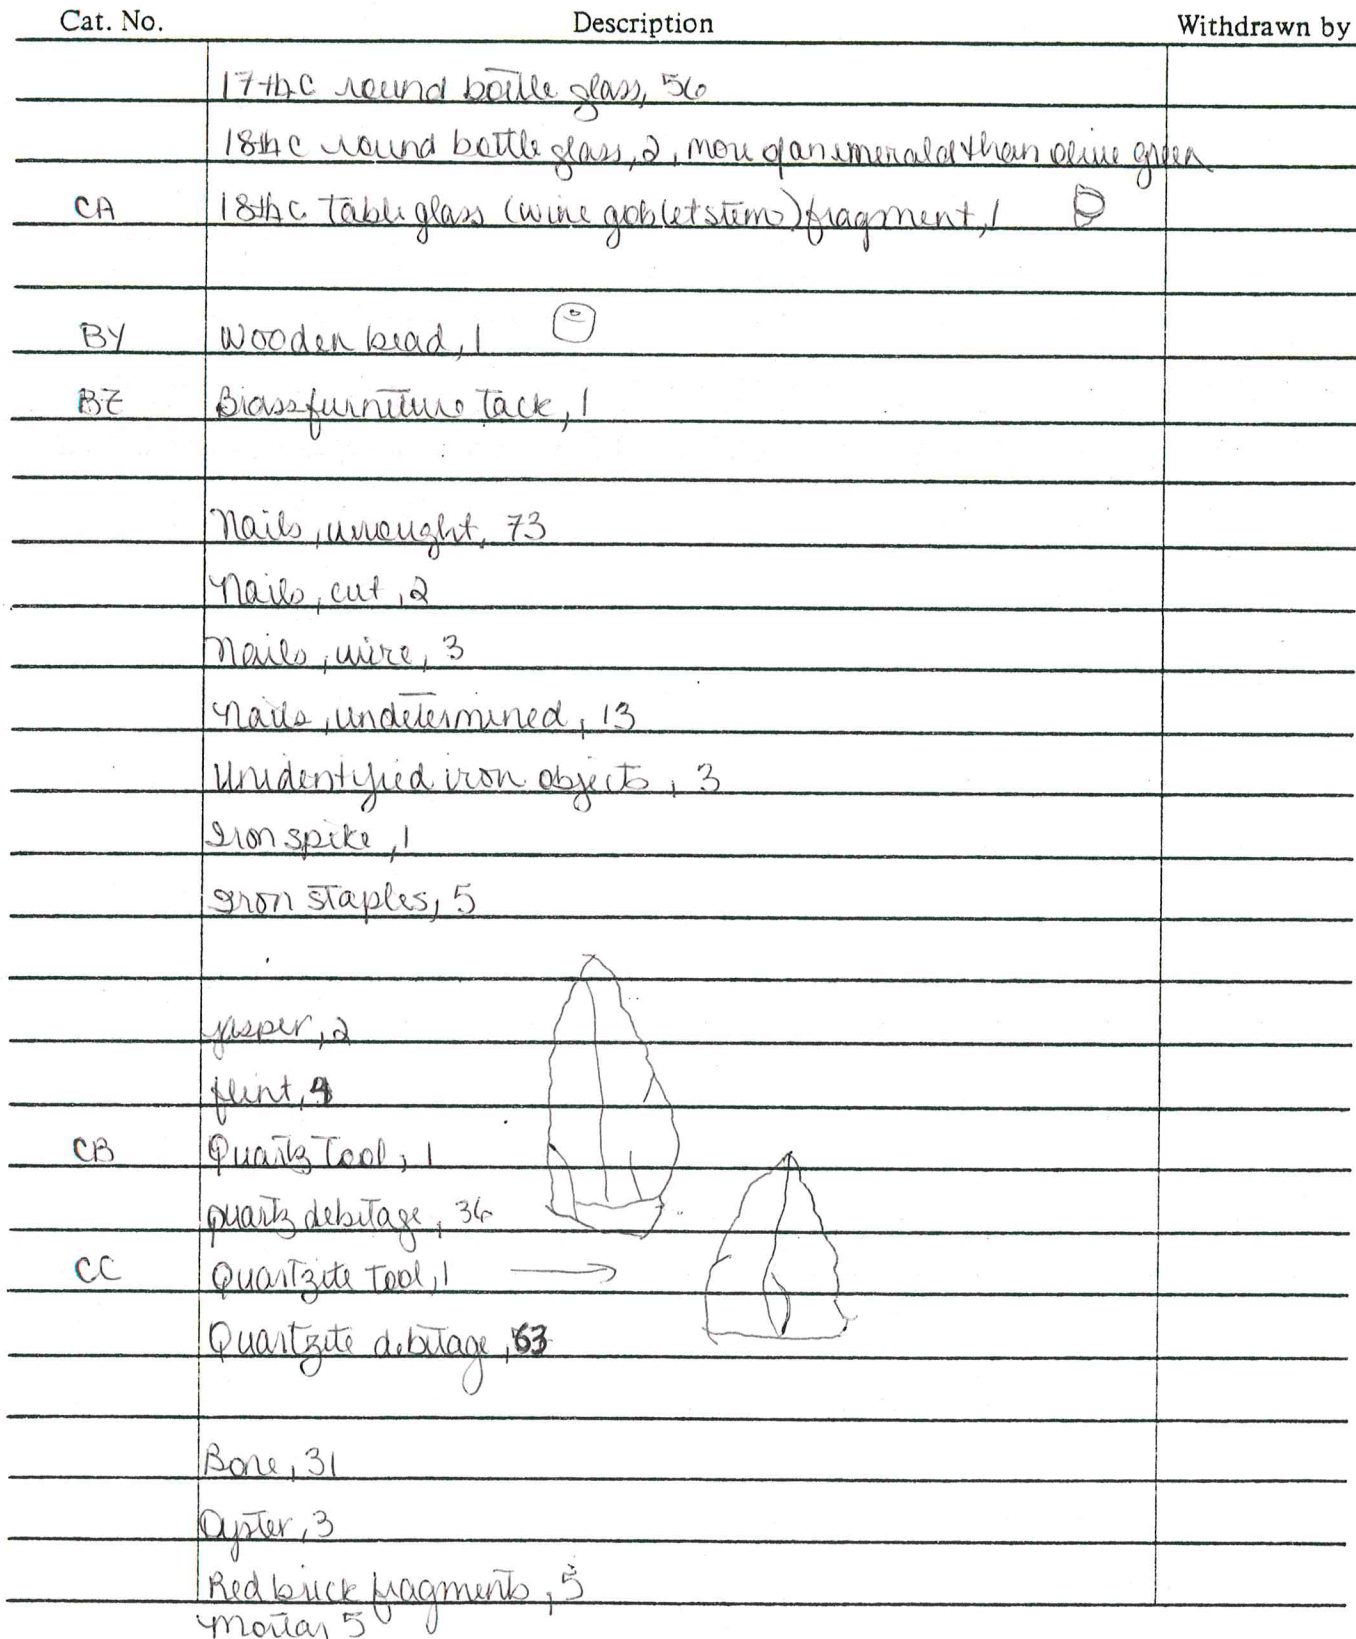 Cat. No. Description Withdrawn by
17th c round bottle glass, 56
18th c round bottle glass, 2, more of an emerald than olive green
CA 18th c. table glass (wine goblet stem) fragment, 1
BY Wooden bead, 1
BZ Brass furniture tack, 1
Nails, wrought, 73
Nails, cut, 2
Nails, wire, 3
Nails, undetermined, 13
Unidentified iron objects, 3
Iron spike, 1
Iron staples, 5
jasper, 2
flint, 4
CB Quartz Tool, 1
quartz debitage, 36
CC Quartzite Tool, 1
Quartzite debitage, 63
Bone, 31
Oyster, 3
Red brick fragments, 5
Mortar 5